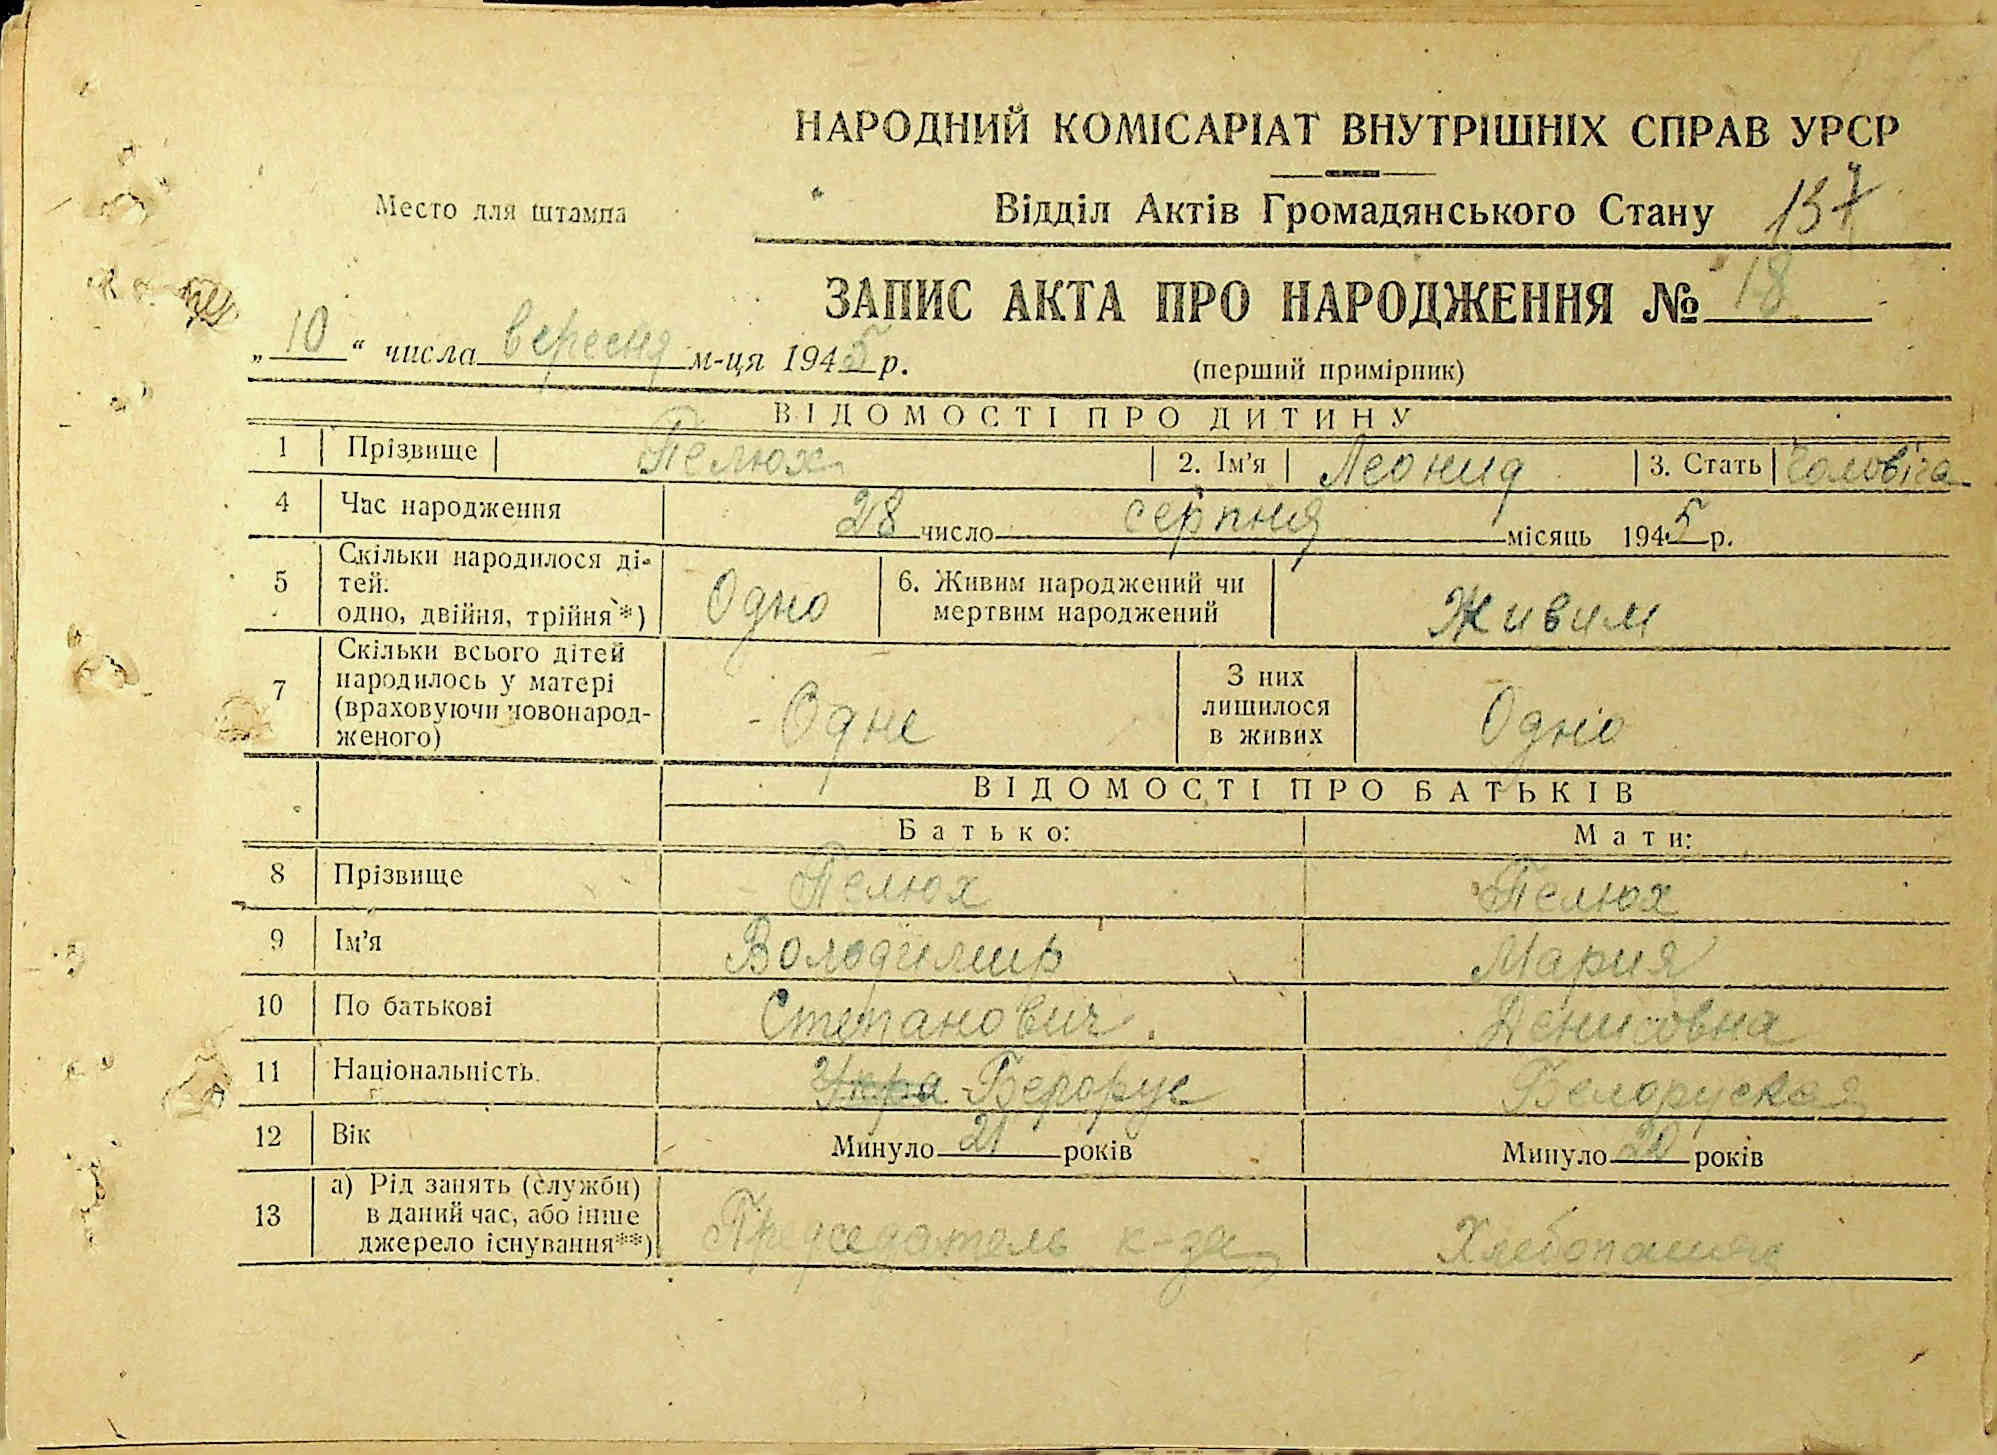 НАРОДНИЙ КОМІСАРІАТ ВНУТРІШНІХ СПРАВ УРСР
Место для штампа
Відділ Актів Громадянського Стану 137
ЗАПИС АКТА ПРО НАРОДЖЕННЯ № 18
„10“ числа вересня м-ця 1945 р.
(перший примірник)
ВІДОМОСТІ ПРО ДИТИНУ
1 Прізвище Пелюх 2. Ім'я Леонид 3. Стать Чоловіча
4 Час народження 28 число серпня місяць 1945 р.
5 Скільки народилося ді-
тей:
одно, двійня, трійня*) Одно
6. Живим народжений чи
мертвим народжений Живим
7 Скільки всього дітей
народилось у матері
(враховуючи новонарод-
женого) Одне
З них
лишилося
в живих Одно
ВІДОМОСТІ ПРО БАТЬКІВ
Батько: Мати:
8 Прізвище Пелюх Пелюх
9 Ім'я Володимир Мария
10 По батькові Степанович. Денисовна
11 Національність Укра Белорус Белоруская
12 Вік Минуло 21 років Минуло 20 років
13 а) Рід занять (служби)
в даний час, або інше
джерело існування**) Председатель к-за Хлебопашец